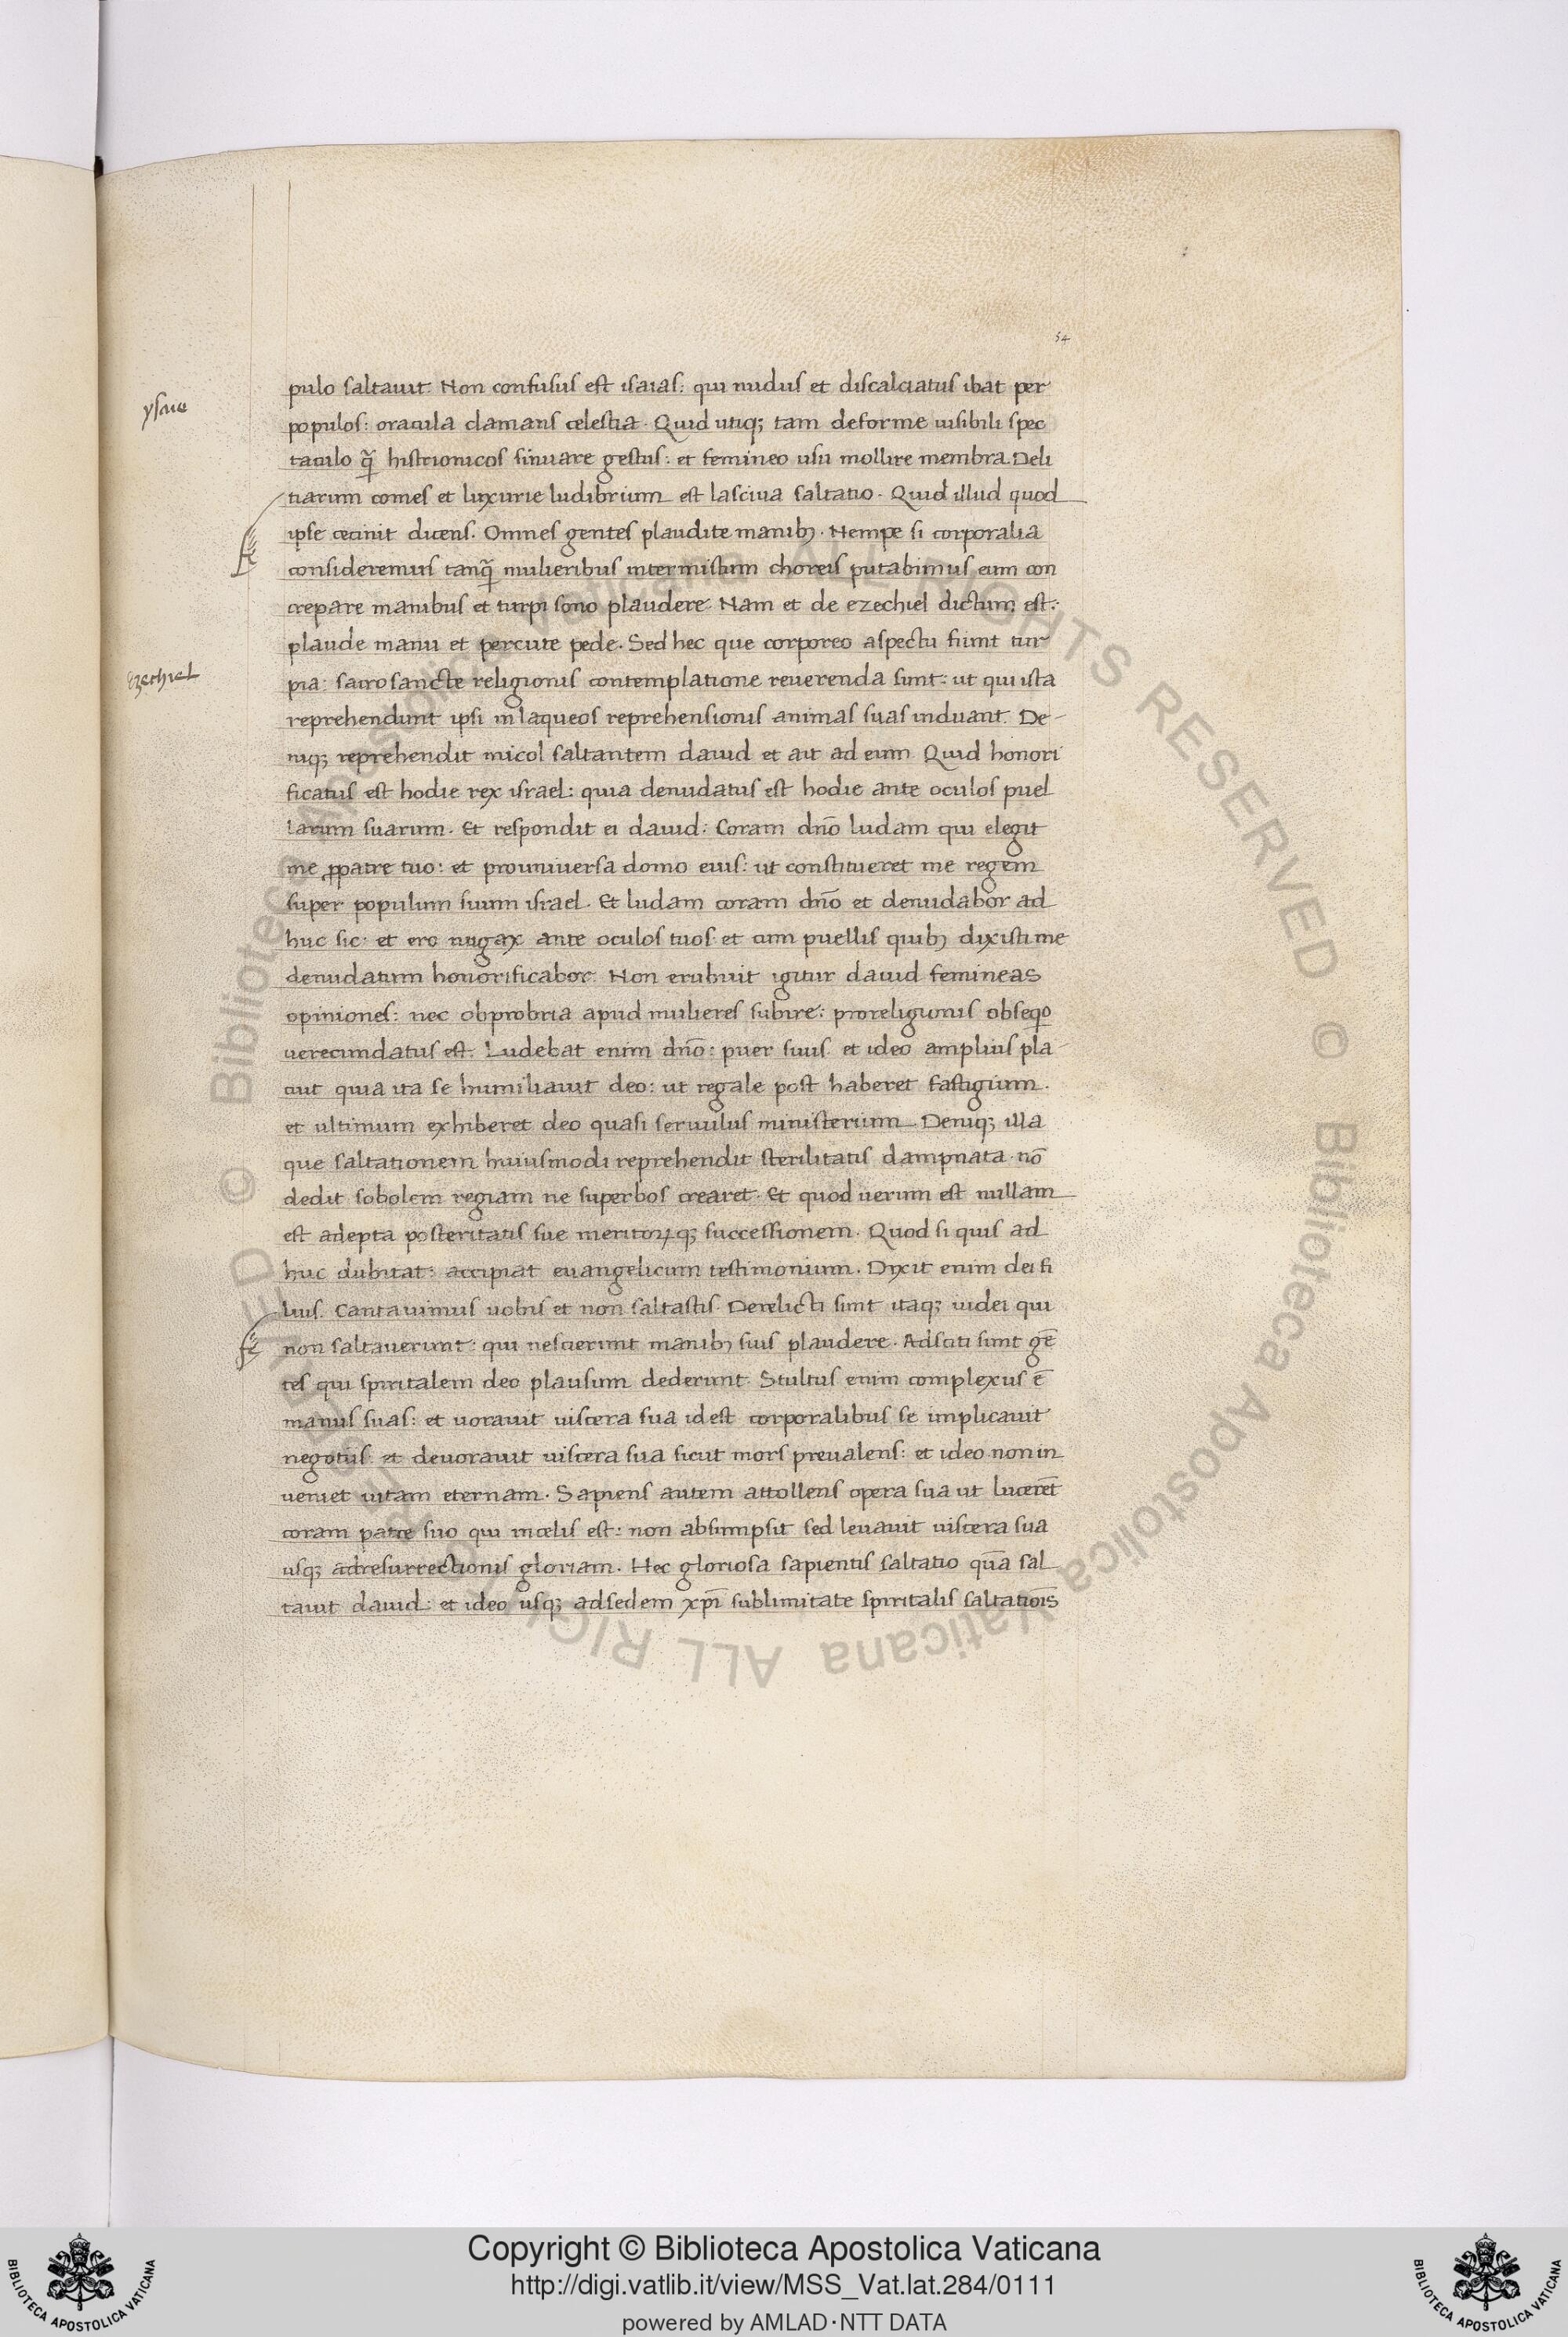 54
pulo saltauit. Non confusus est isaias: qui nudus et discalciatus ibat per
ysaie
populos: oracula clamans celestia. Quid utiq; tam deforme uisibili spec
taculo q̃ histrionicos sinuare gestus: et femineo usu mollire membra. Deli
tiarum comes et luxurie ludibrium est lasciua saltatio. Quid illud quod
ipse cecinit dicens. Omnes gentes plaudite manibꝫ. Nempe si corporalia
consideremus tanq̃ mulieribus intermistum choreis putabimus eum con
crepare manibus et turpi sono plaudere. Nam et de ezechiel dictum est:
plaude manu et percute pede. Sed hec que corporeo aspectu fiunt tur
Ezechiel
pia: sacrosancte religionis contemplatione reuerenda sunt: ut qui ista
reprehendunt ipsi in laqueos reprehensionis animas suas induant. De-
niq; reprehendit micol saltantem dauid et ait ad eum. Quid honori
ficatus est hodie rex israel: quia denudatus est hodie ante oculos puel
larum suarum. Et respondit ei dauid: Coram dño ludam qui elegit
me ꝓpatre tuo: et prouniuersa domo eius: ut constitueret me regem
super populum suum israel. Et ludam coram dño et denudabor ad
huc sic: et ero nugax ante oculos tuos: et cum puellis quibꝫ dixisti me
denudatum honorificabor. Non erubuit igitur dauid femineas
opiniones: nec obprobria apud mulieres subire: proreligionis obseq̊
uerecundatus est. Ludebat enim dño: puer suus: et ideo amplius pla
cuit quia ita se humiliauit deo: ut regale post haberet fastigium.
et ultimum exhiberet deo quasi seruulus ministerium. Deniq; illa
que saltationem huiusmodi reprehendit sterilitatis dampnata. nō
dedit sobolem regiam ne superbos crearet. Et quod uerum est nullam
est adepta posteritatis sue meritoꝝq; successionem. Quod si quis ad
huc dubitat: accipiat euangelicum testimonium. Dixit enim dei fi
lius. Cantauimus uobis et non saltastis. Derelicti sunt itaq; iudei qui
non saltauerunt: qui nescierunt manibꝫ suis plaudere. Adsciti sunt gē
tes qui spiritalem deo plausum dederunt. Stultus enim complexus ē
manus suas: et uorauit uiscera sua idest corporalibus se implicauit
negotiis: et deuorauit uiscera sua sicut mors preualens: et ideo non in
ueniet uitam eternam. Sapiens autem attollens opera sua ut lucerēt
coram patre suo qui incelis est: non absumpsit sed leuauit uiscera sua
usq; adresurrectionis gloriam. Hec gloriosa sapientis saltatio quā sal
tauit dauid: et ideo usq; adsedem xp̄i sublimitate spiritalis saltatiōis
© Biblioteca Apostolica Vaticana ALL RIGHTS RESERVED © Biblioteca Apostolica Vaticana ALL RIGHTS RESERVED
Copyright © Biblioteca Apostolica Vaticana
http://digi.vatlib.it/view/MSS_Vat.lat.284/0111
powered by AMLAD·NTT DATA
BIBLIOTECA APOSTOLICA VATICANA
BIBLIOTECA APOSTOLICA VATICANA